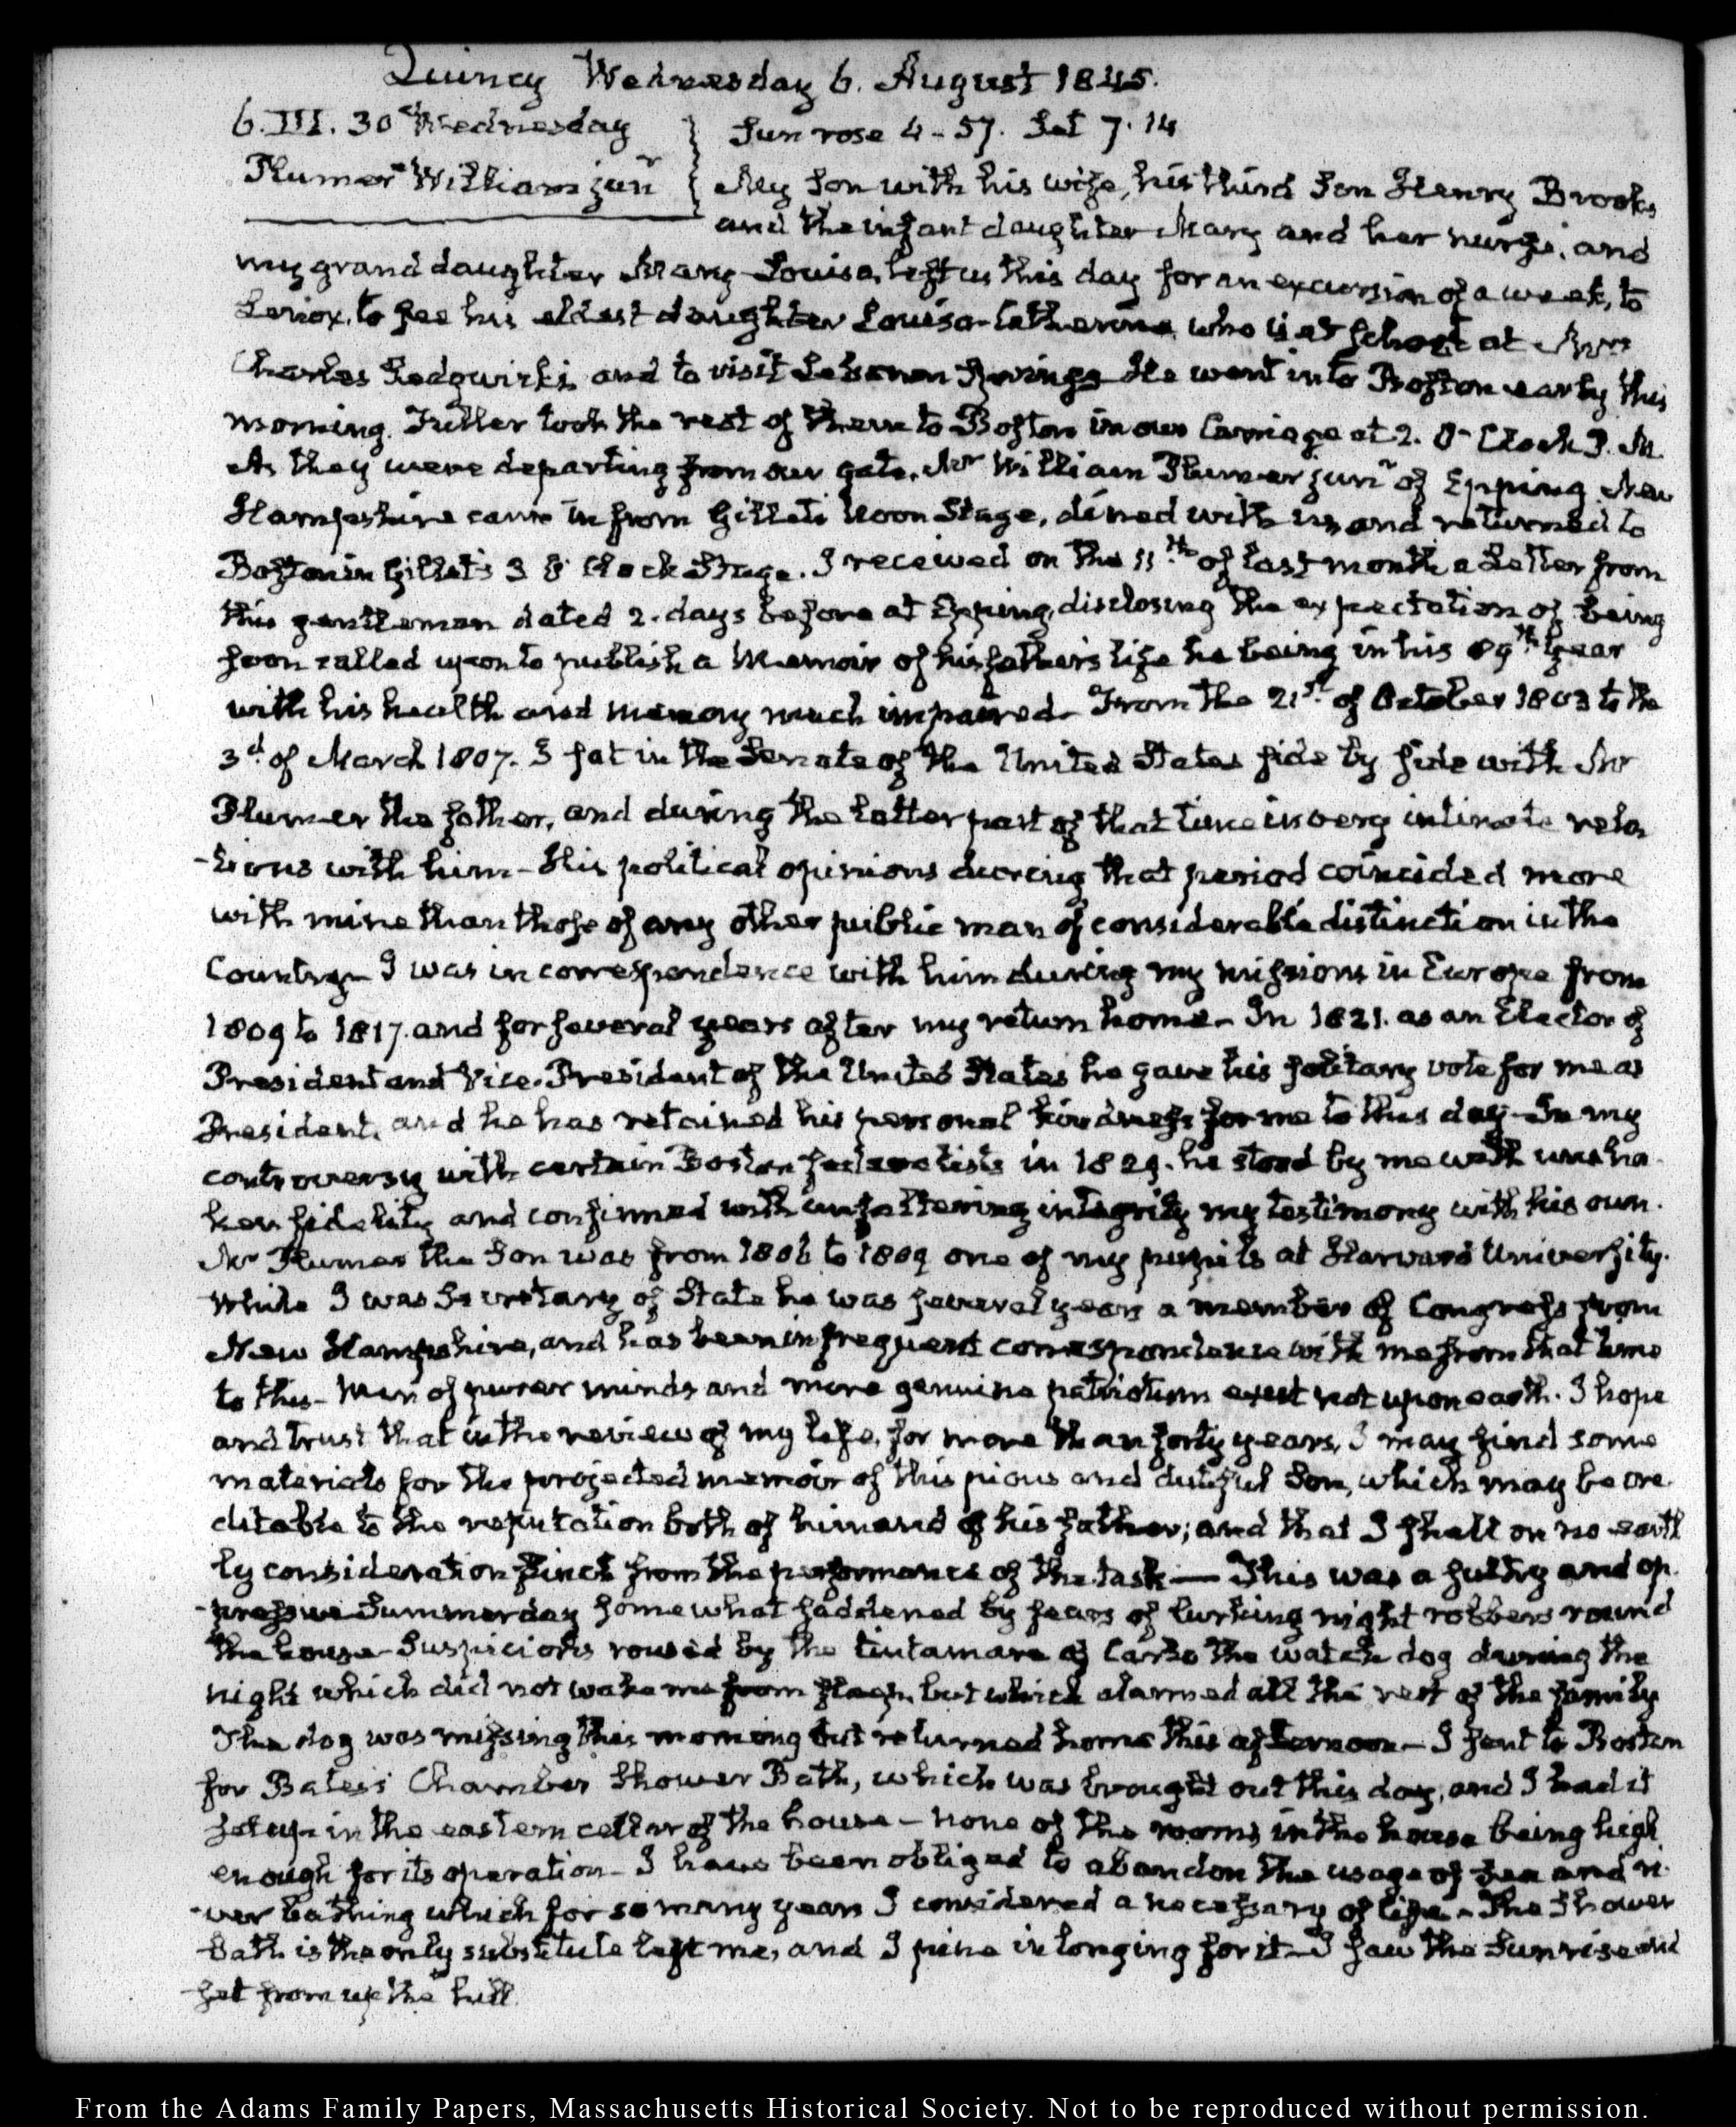 Quincy Wednesday 6. August 1845.
6. III. 30 Wednesday
Plumer William junr
Sun rose 4-57. Set 7.14
My Son with his wife, his third Son Henry Brooks
and the infant daughter Mary and her nurse, and
my grand daughter Mary-Louisa, left us this day for an excursion of a week, to
Lenox, to see his eldest daughter Louisa-Catherine who is at School at Mrs
Charles Sedgwick's, and to visit Lebanon Springs He went into Boston early this
morning. Fuller took the rest of them to Boston in our Carriage at 2. O-Clock P. M.
As they were departing from our gate, Mr William Plumer junr of Epping New
Hampshire came in from Gillett's Noon Stage, dined with us and returned to
Boston in Gillet's 3 O'Clock Stage. I received on the 11th of last month a Letter from
this gentleman dated 2. days before at Epping, disclosing the expectation of being
soon called upon to publish a Memoir of his father's life he being in his 89th year
with his health and memory much impaired- From the 21st of October 1803 to the
3d of March 1807. I sat in the Senate of the United States side by side with Mr
Plumer the father, and during the latter part of that time in very intimate rela
-tions with him- His political opinions during that period coincided more
with mine than those of any other public man of considerable distinction in the
Country- I was in correspondence with him during my missions in Europe from
1809 to 1817. and for several years after my return home- In 1821. as an Elector of
President and Vice-President of the United States he gave his solitary vote for me as
President, and he has retained his personal kindness for me to this day- In my
controversy with certain Boston federalists in 1829. he stood by me with unsha
ken fidelity and confirmed with unfaltering integrity my testimony with his own.
Mr Plumer the Son was from 1806 to 1809 one of my pupils at Harvard University.
While I was Secretary of State he was several years a member of Congress from
New Hampshire, and has been in frequent correspondence with me from that time
to this- Men of purer minds and more genuine patriotism exist not upon earth. I hope
and trust that in the review of my life, for more than forty years, I may find some
materials for the projected memoir of this pious and dutiful Son, which may be cre
ditable to the reputation both of him and of his father; and that I shall on no earth
ly consideration flinch from the performance of the task— This was a sultry and op
-pressive Summer day somewhat saddened by fears of lurking night robbers round
the house- Suspicions roused by the tintamare of Carlo the watch dog during the
night which did not wake me from sleep, but which alarmed all the rest of the family
The dog was missing this morning but returned home this afternoon- I sent to Boston
for Bates's Chamber Shower Bath, which was brought out this day, and I had it
set up in the eastern cellar of the house- none of the rooms in the house being high
enough for its operation- I have been obliged to abandon the usage of sea and ri
-ver bathing which for so many years I considered a necessary of life- The Shower
Bath is the only substitute left me, and I pine in longing for it- I saw the Sun rise and
set from up the hill
From the Adams Family Papers, Massachusetts Historical Society. Not to be reproduced without permission.